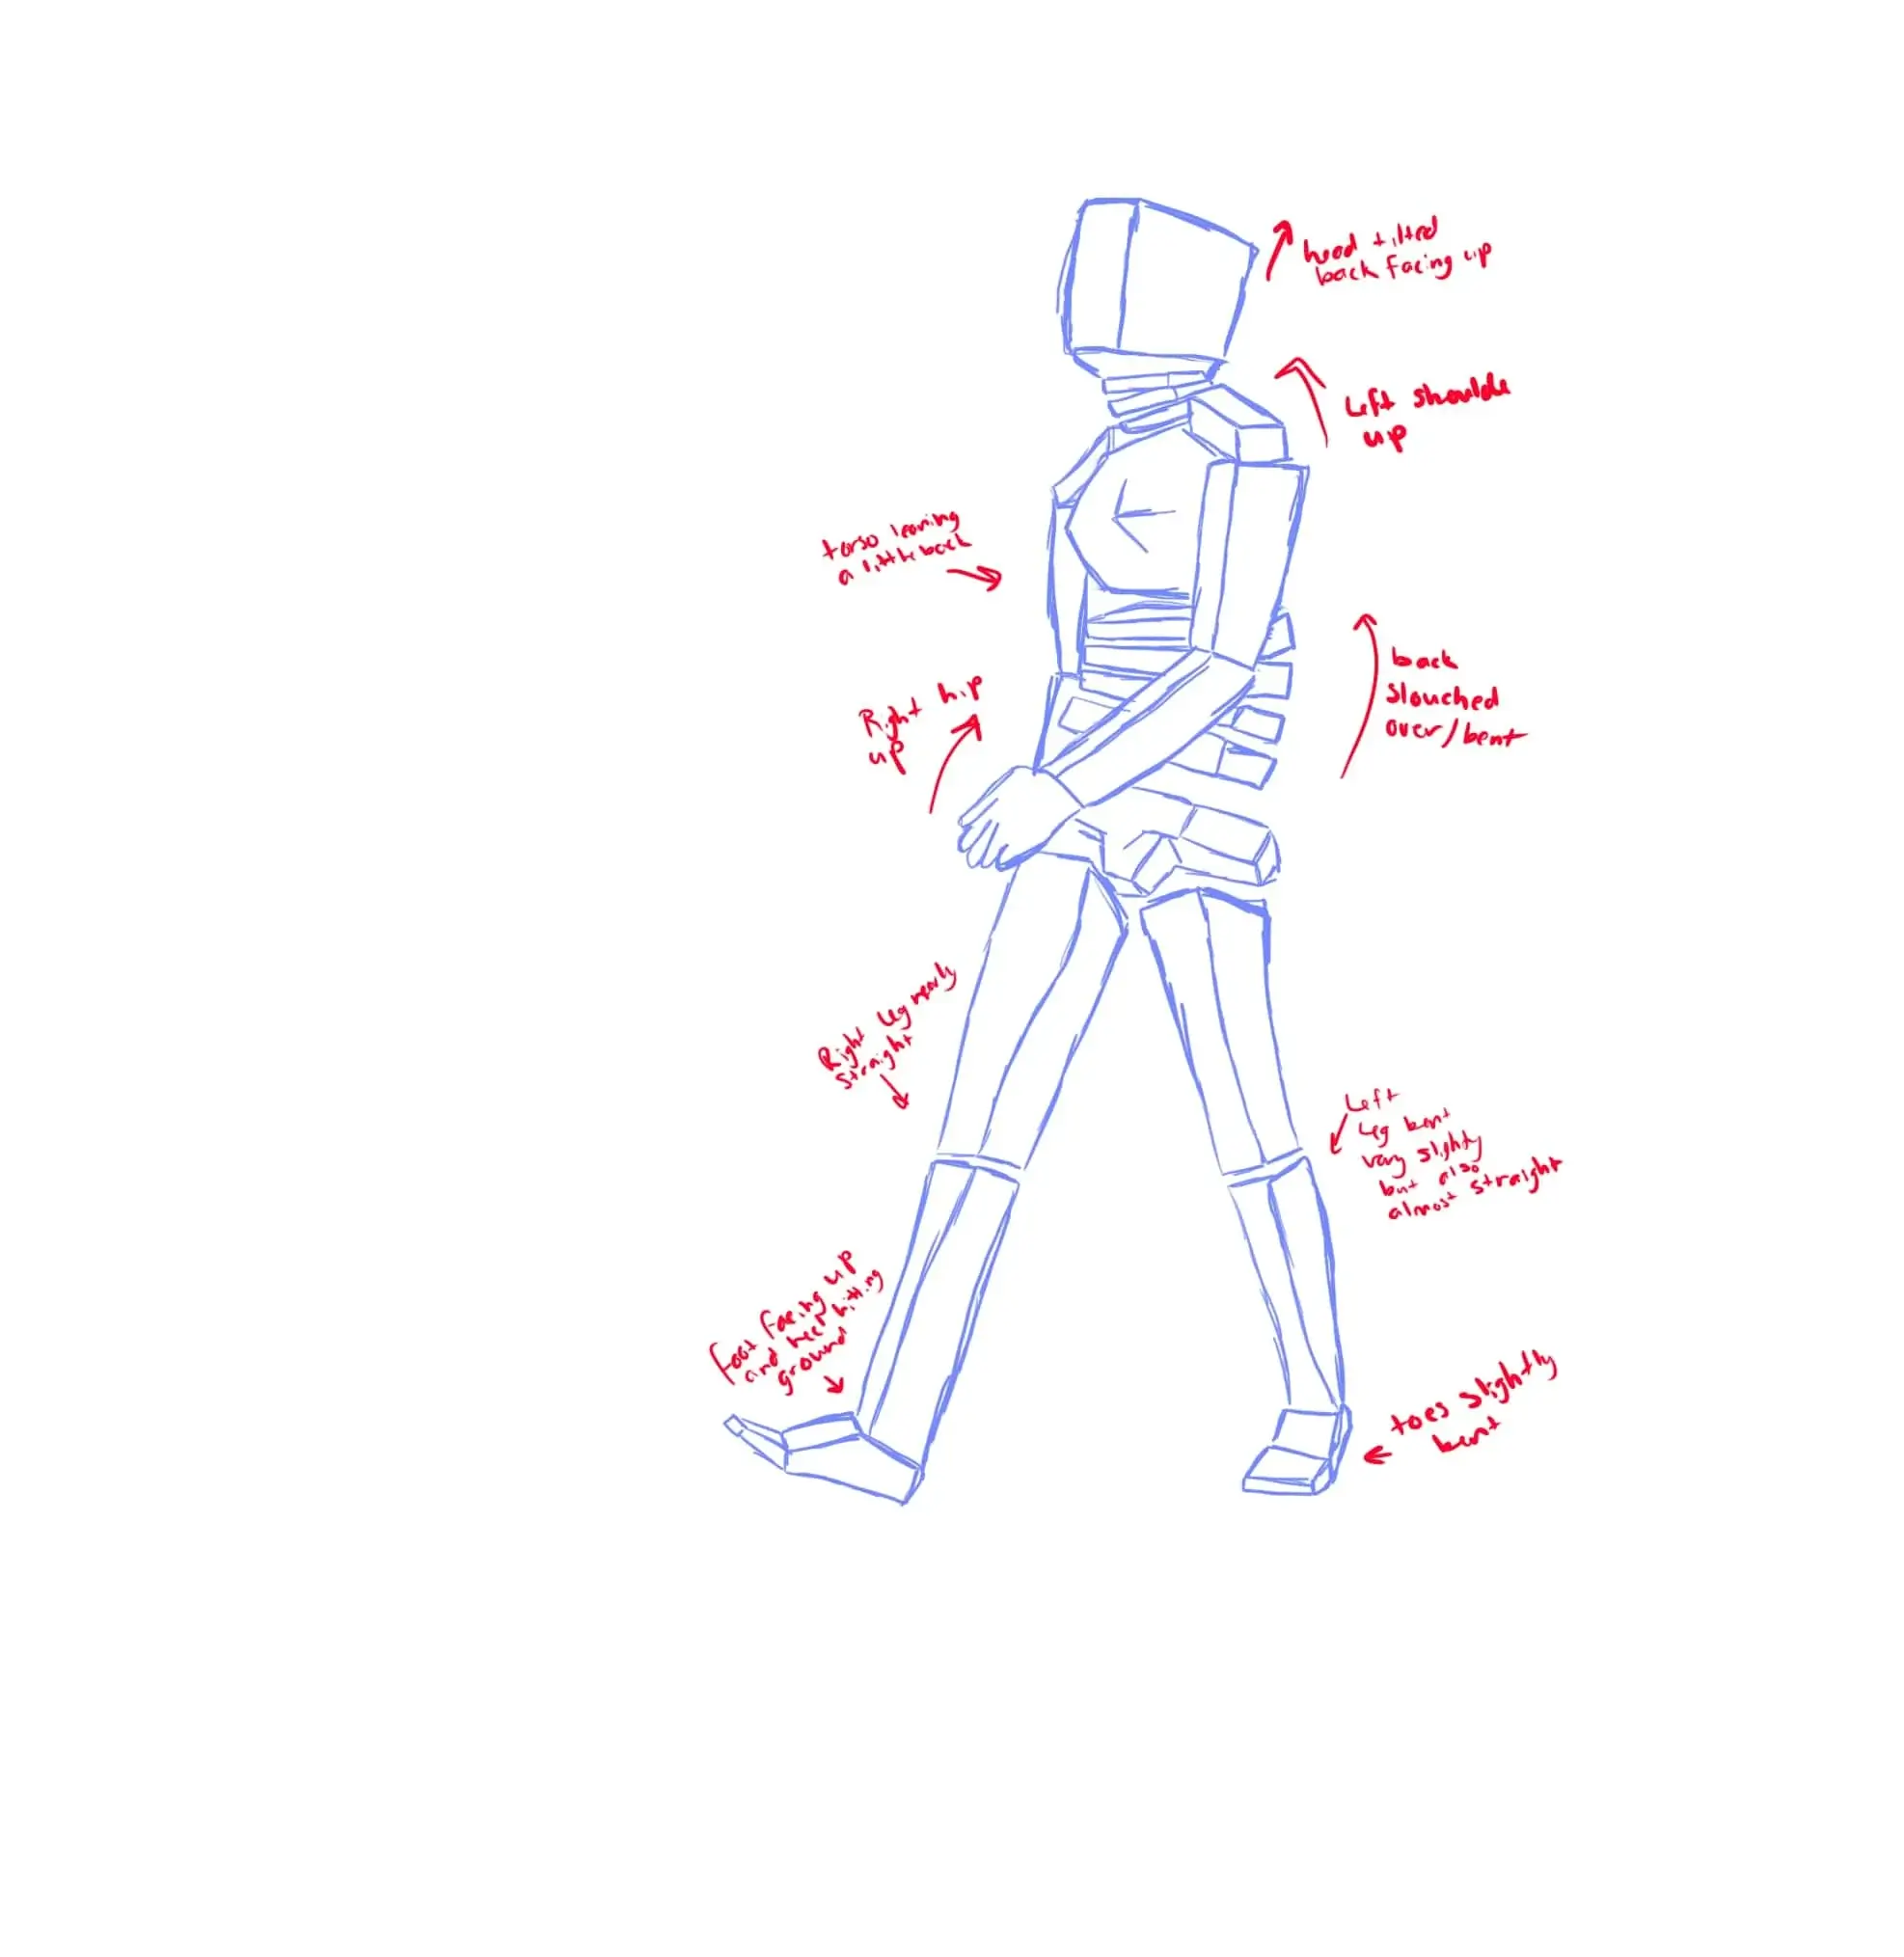 head tilted
back facing up
Left shoulde
up
torso leaning
a little back
Right hip
up
back
slouched
over/bent
Right leg nearly
straight
Left
leg bent
very slighty
but also
almost straight
foot facing up
and heel hitting
ground
toes slightly
bent